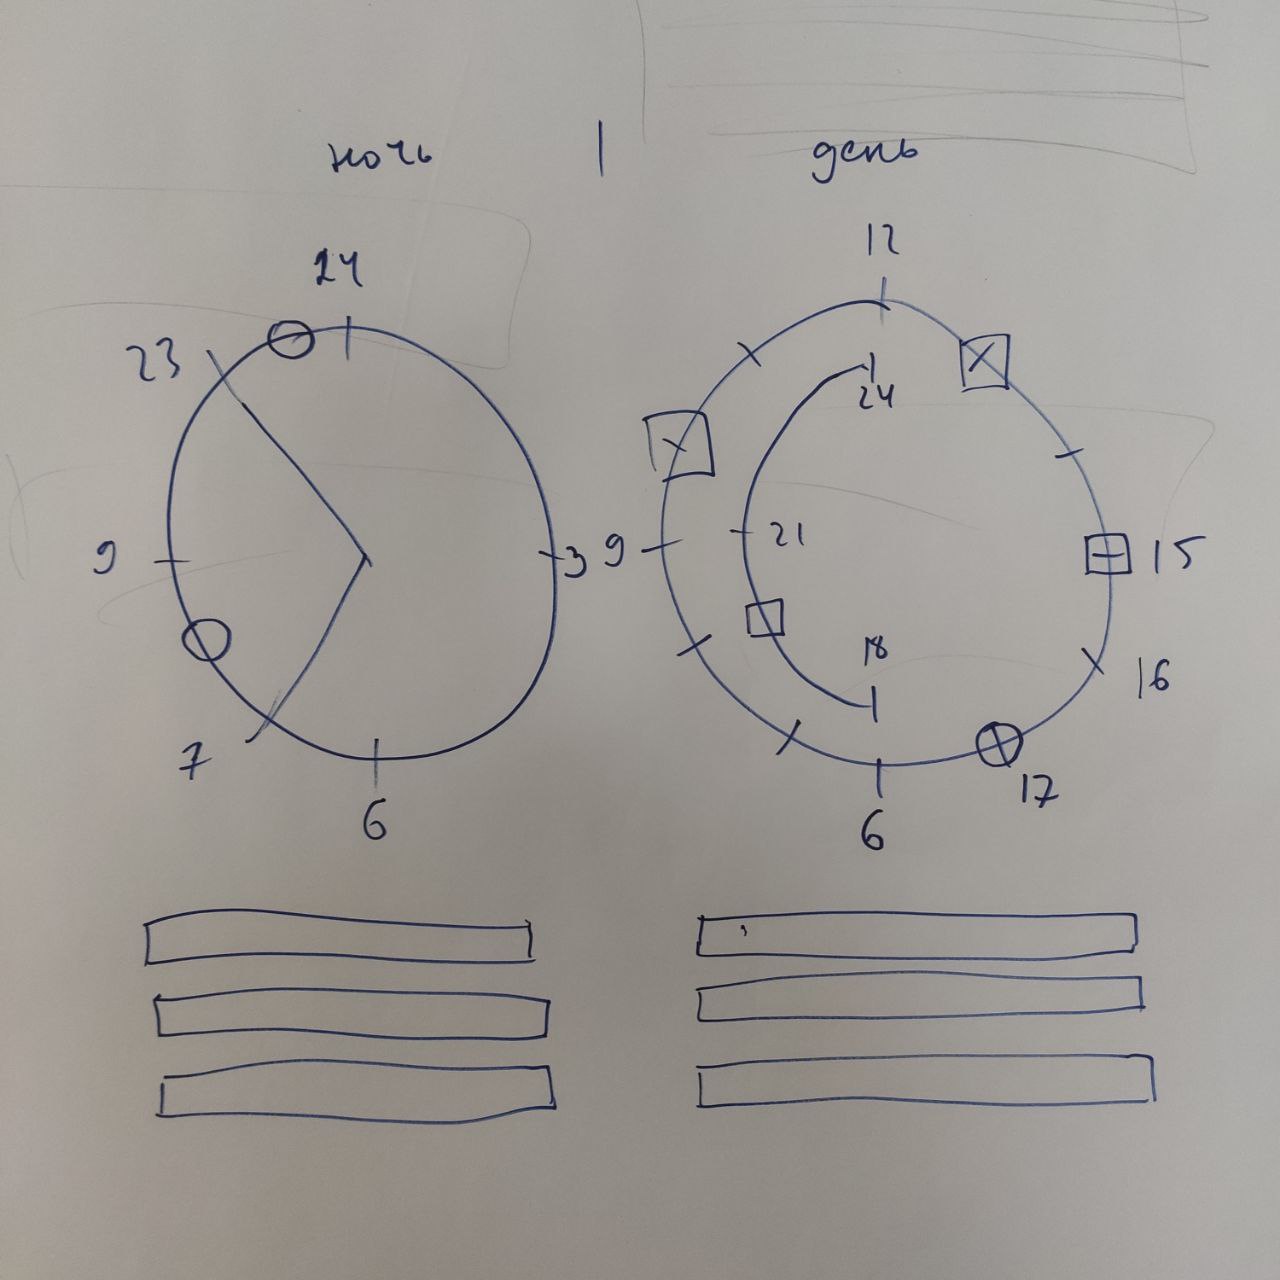 ночь | день
24
23
9
3
7
6
12
24
9
21
15
18
16
17
6